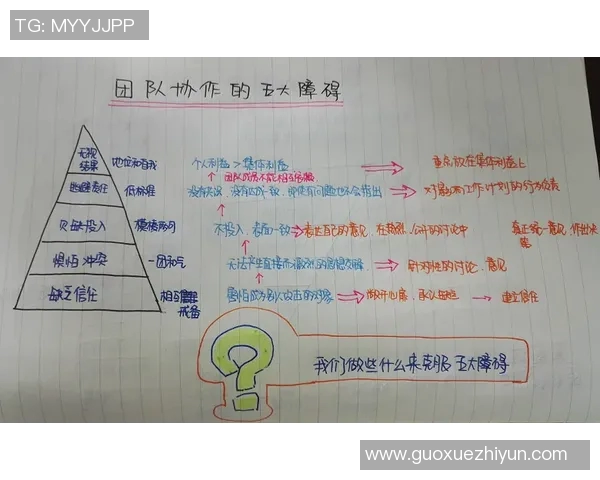 TG: MYYJJPP
团队协作的五大障碍
无视结果 地位和自我 个人利益 > 集体利益 重点放在集体利益上
团队成员不能相互
逃避责任 低标准 没有 没有达成一致, 即使有问题也不会指出 对 工作计划的
欠缺投入 模棱两可 不投入, 表面一致 表达自己的意见, 在 公开的讨论中 真正统一意见, 作出决策
惧怕冲突 一团和气 无法产生直接而激烈的思想交锋 针对性的讨论, 意见
缺乏信任 相互戒备 害怕成为别人攻击的对象 敞开心扉, 承认 建立信任
我们做些什么来克服五大障碍
www.guoxuezhiyun.com